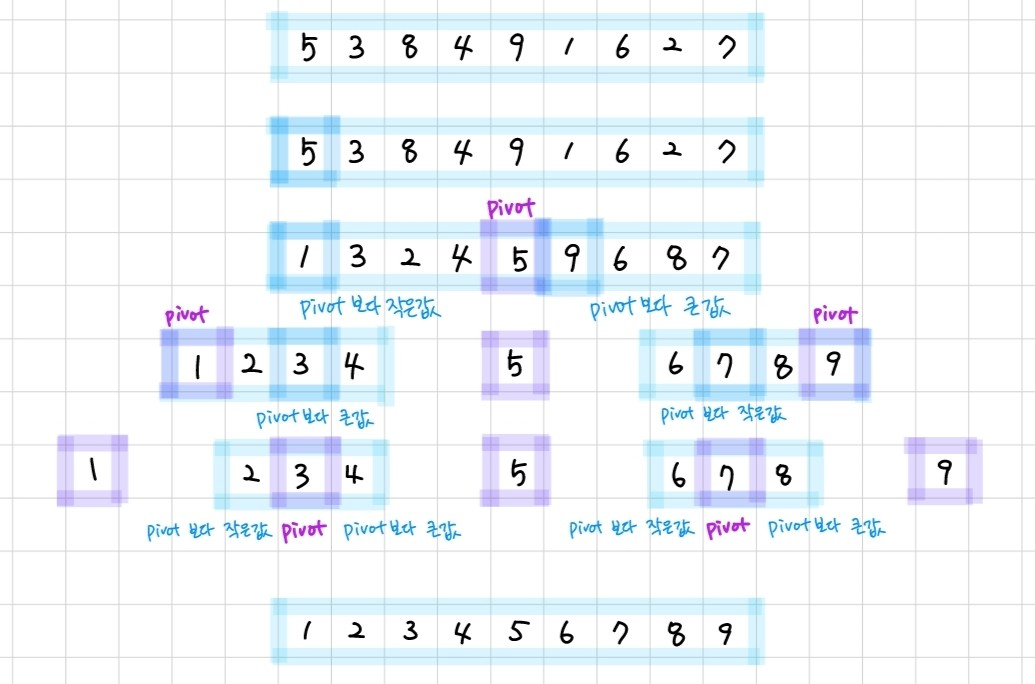 5 3 8 4 9 1 6 2 7
5 3 8 4 9 1 6 2 7
pivot
1 3 2 4 5 9 6 8 7
pivot 보다 작은값 pivot 보다 큰값
pivot pivot
1 2 3 4 5 6 7 8 9
pivot보다 큰값 pivot 보다 작은값
1 2 3 4 5 6 7 8 9
pivot 보다 작은값 pivot pivot보다 큰값 pivot 보다 작은값 pivot pivot보다 큰값
1 2 3 4 5 6 7 8 9